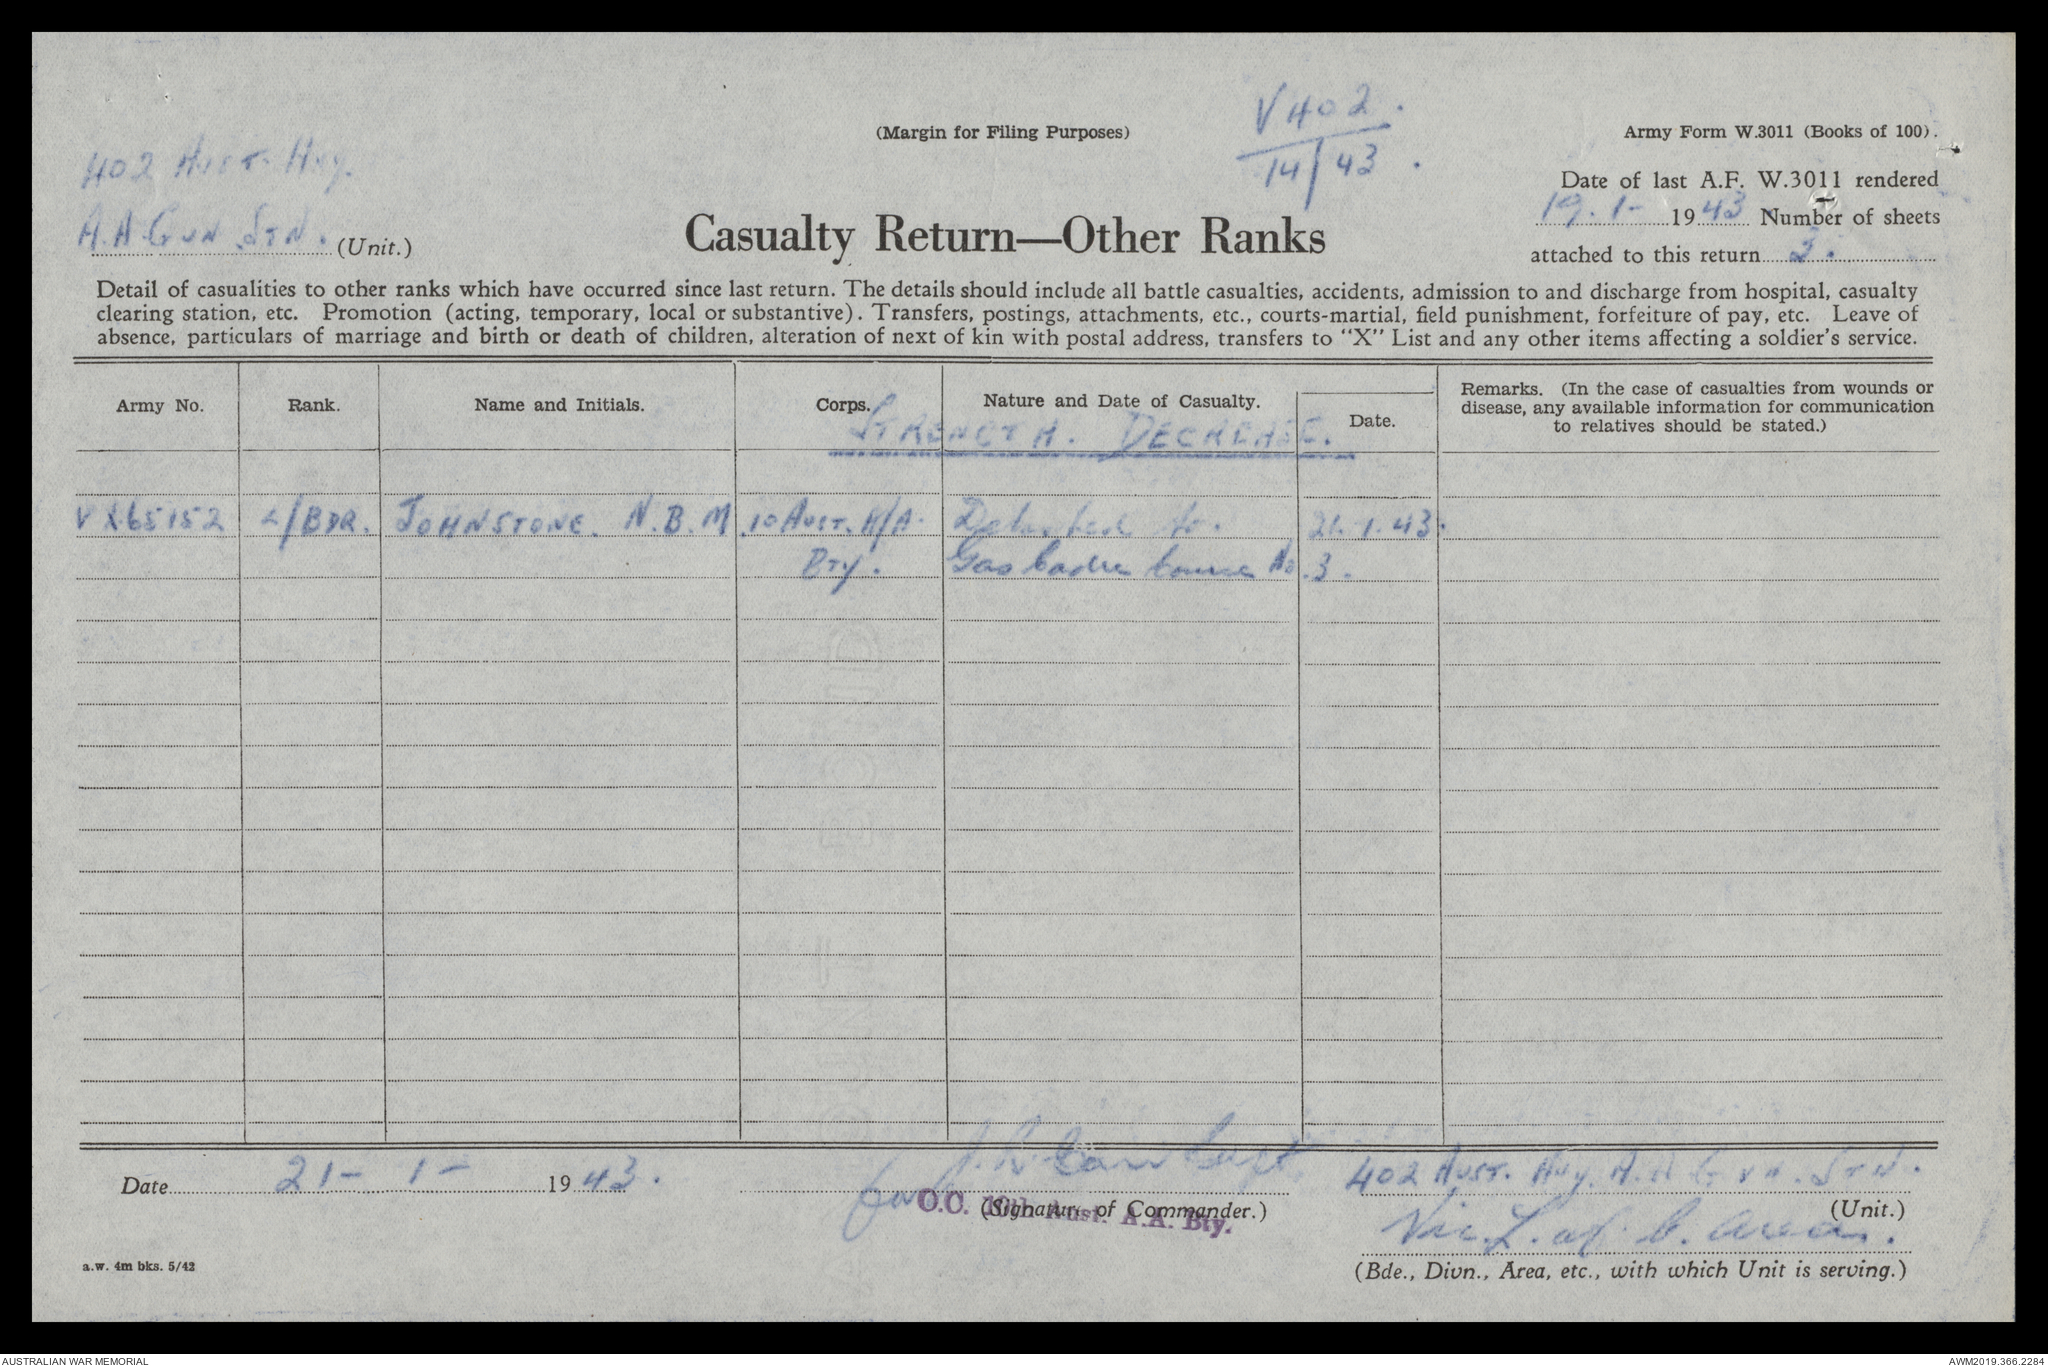 V402.
14/43.
(Margin for Filing Purposes)
Army Form W.3011 (Books of 100).
402 Aust. Hvy.
A.A. Gun Stn. (Unit.)
Casualty Return—Other Ranks
Date of last A.F. W.3011 rendered
19.1- 1943 Number of sheets
attached to this return 3.
Detail of casualities to other ranks which have occurred since last return. The details should include all battle casualties, accidents, admission to and discharge from hospital, casualty
clearing station, etc. Promotion (acting, temporary, local or substantive). Transfers, postings, attachments, etc., courts-martial, field punishment, forfeiture of pay, etc. Leave of
absence, particulars of marriage and birth or death of children, alteration of next of kin with postal address, transfers to "X" List and any other items affecting a soldier's service.
Army No. Rank. Name and Initials. Corps. Nature and Date of Casualty. Date. Remarks. (In the case of casualties from wounds or
disease, any available information for communication
to relatives should be stated.)
STRENGTH. DECREASE.
VX65152 L/BDR. JOHNSTONE. N.B.M. 10 AUST. A/A. Detached to. 21.1.43.
BTY. Gas Cadre Course No. 3.
Date 21- 1- 1943.
for
O.C. 10th Aust. A.A. Bty.
(Signature of Commander.)
402 Aust. Hvy. A.A Gun. Stn.
(Unit.)
Vic. L. of C. Area.
(Bde., Divn., Area, etc., with which Unit is serving.)
a.w. 4m bks. 5/42
AUSTRALIAN WAR MEMORIAL
AWM2019.366.2284